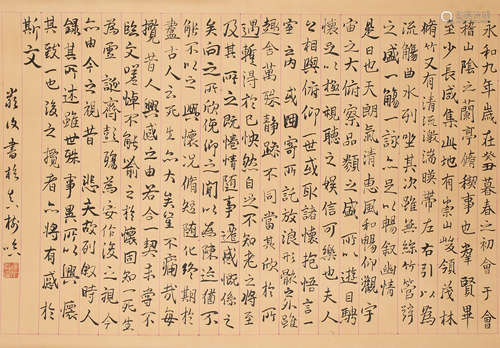 永和九年歲在癸丑暮春之初會于會
稽山陰之蘭亭脩稧事也羣賢畢
至少長咸集此地有崇山峻領茂林
脩竹又有清流激湍暎帶左右引以為
流觴曲水列坐其次雖無絲竹管弦
之盛一觴一詠亦足以暢敘幽情
是日也天朗氣清惠風和暢仰觀宇
宙之大俯察品類之盛所以遊目騁
懷足以極視聽之娛信可樂也夫人
之相與俯仰一世或取諸懷抱悟言一
室之內或因寄所託放浪形骸之外雖
趣舍萬殊靜躁不同當其欣於所
遇暫得於己快然自足不知老之將至
及其所之既惓情隨事遷感慨係之
矣向之所欣俛仰之間以為陳迹猶不
能不以之興懷況脩短隨化終期於
盡古人云死生亦大矣豈不痛哉每
攬昔人興感之由若合一契未嘗不
臨文嗟悼不能喻之於懷固知一死生
為虛誕齊彭殤為妄作後之視今
亦由今之視昔 悲夫故列敘時人
錄其所述雖世殊事異所以興懷
其致一也後之攬者亦將有感於
斯文
書於